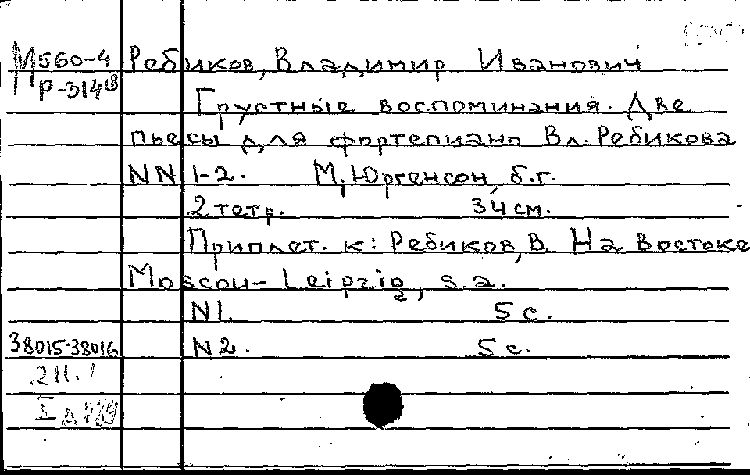 М560-4 Ребиков, Владимир Иванович
Р-314
Грустные воспоминания. Две
пьесы для фортепиано Вл. Ребикова
NN 1-2. М, Юргенсон, б.г.
2 тетр. 34 см.
Приплет. к: Ребиков, В. На Востоке
Moscou-Leipzig, s.a.
N1. 5 с.
38015-38016 N2. 5 с.
2 Н.